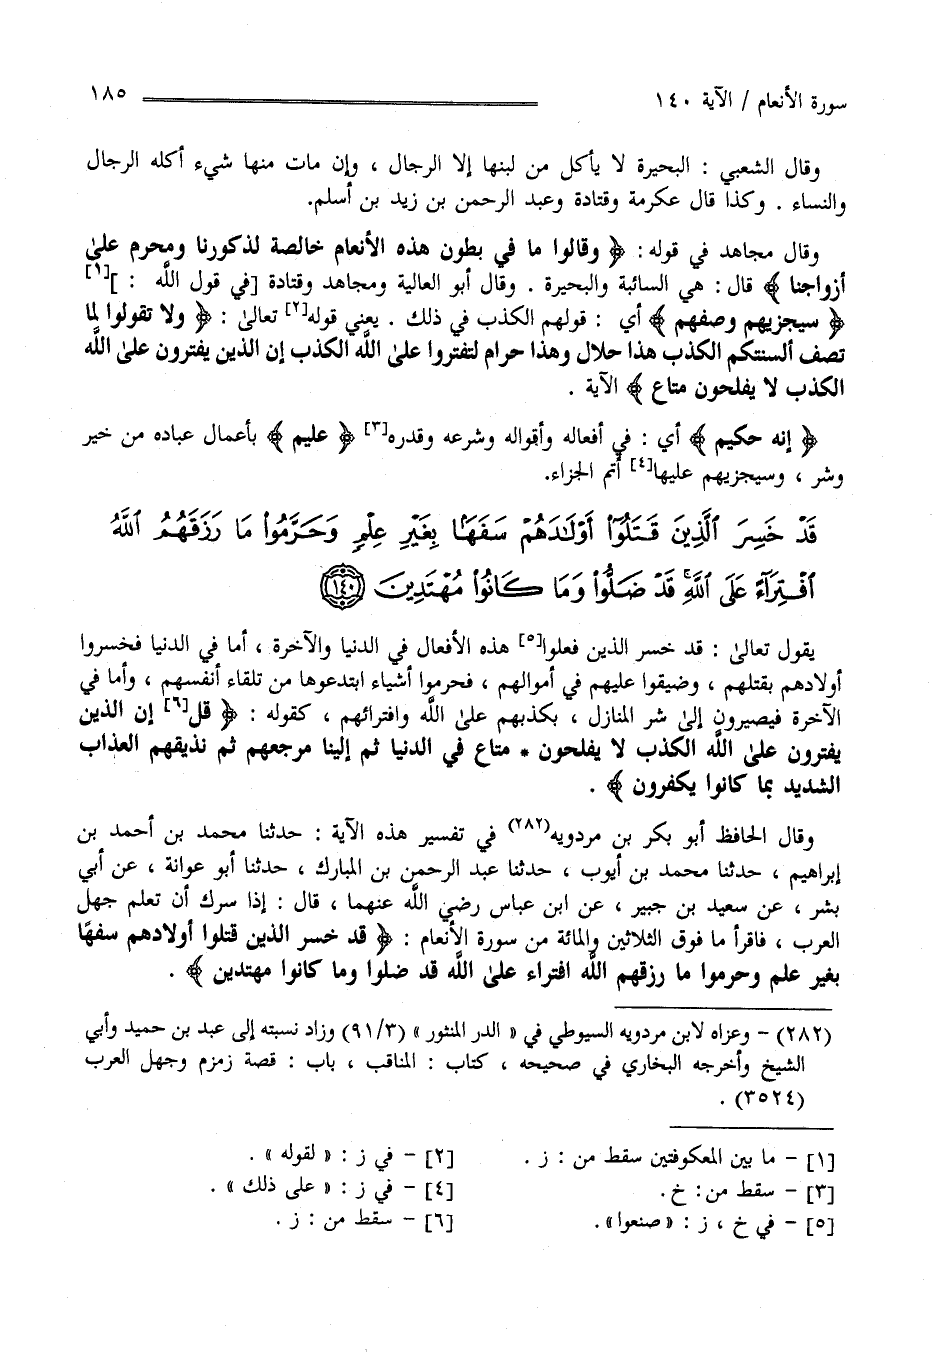 سورة الأنعام / الآية ١٤٠ ١٨٥
وقال الشعبي : البحيرة لا يأكل من لبنها إلا الرجال ، وإن مات منها شيء أكله الرجال
والنساء . وكذا قال عكرمة وقتادة وعبد الرحمن بن زيد بن أسلم.
وقال مجاهد في قوله: ﴿ وقالوا ما في بطون هذه الأنعام خالصة لذكورنا ومحرم علىٰ
أزواجنا ﴾ قال: هي السائبة والبحيرة . وقال أبو العالية ومجاهد وقتادة [في قول اللَّه : ][١]
﴿ سيجزيهم وصفهم ﴾ أي : قولهم الكذب في ذلك . يعني قوله[٢] تعالىٰ : ﴿ ولا تقولوا لما
تصف ألسنتكم الكذب هذا حلال وهذا حرام لتفتروا علىٰ اللَّه الكذب إن الذين يفترون علىٰ اللَّه
الكذب لا يفلحون متاع ﴾ الآية .
﴿ إنه حكيم ﴾ أي : في أفعاله وأقواله وشرعه وقدره[٣] ﴿ عليم ﴾ بأعمال عباده من خير
وشر ، وسيجزيهم عليها[٤] أتم الجزاء.
قَدْ خَسِرَ ٱلَّذِينَ قَتَلُوٓا۟ أَوْلَـٰدَهُمْ سَفَهًۢا بِغَيْرِ عِلْمٍ وَحَرَّمُوا۟ مَا رَزَقَهُمُ ٱللَّهُ
ٱفْتِرَآءً عَلَى ٱللَّهِ ۚ قَدْ ضَلُّوا۟ وَمَا كَانُوا۟ مُهْتَدِينَ ١٤٠
يقول تعالىٰ : قد خسر الذين فعلوا[٥] هذه الأفعال في الدنيا والآخرة ، أما في الدنيا فخسروا
أولادهم بقتلهم ، وضيقوا عليهم في أموالهم ، فحرموا أشياء ابتدعوها من تلقاء أنفسهم ، وأما في
الآخرة فيصيرون إلىٰ شر المنازل ، بكذبهم علىٰ اللَّه وافترائهم ، كقوله : ﴿ قل[٦] إن الذين
يفترون علىٰ اللَّه الكذب لا يفلحون * متاع في الدنيا ثم إلينا مرجعهم ثم نذيقهم العذاب
الشديد بما كانوا يكفرون ﴾ .
وقال الحافظ أبو بكر بن مردويه(٢٨٢) في تفسير هذه الآية : حدثنا محمد بن أحمد بن
إبراهيم ، حدثنا محمد بن أيوب ، حدثنا عبد الرحمن بن المبارك ، حدثنا أبو عوانة ، عن أبي
بشر ، عن سعيد بن جبير ، عن ابن عباس رضي اللَّه عنهما ، قال : إذا سرك أن تعلم جهل
العرب ، فاقرأ ما فوق الثلاثين والمائة من سورة الأنعام : ﴿ قد خسر الذين قتلوا أولادهم سفهًا
بغير علم وحرموا ما رزقهم اللَّه افتراء علىٰ اللَّه قد ضلوا وما كانوا مهتدين ﴾ .
(٢٨٢) – وعزاه لابن مردويه السيوطي في « الدر المنثور » (٩١/٣) وزاد نسبته إلى عبد بن حميد وأبي
الشيخ وأخرجه البخاري في صحيحه ، كتاب : المناقب ، باب : قصة زمزم وجهل العرب
(٣٥٢٤) .
[١] – ما بين المعكوفتين سقط من : ز . [٢] – في ز : « لقوله » .
[٣] – سقط من: خ. [٤] – في ز : « على ذلك » .
[٥] – في خ ، ز : « صنعوا». [٦] – سقط من : ز .